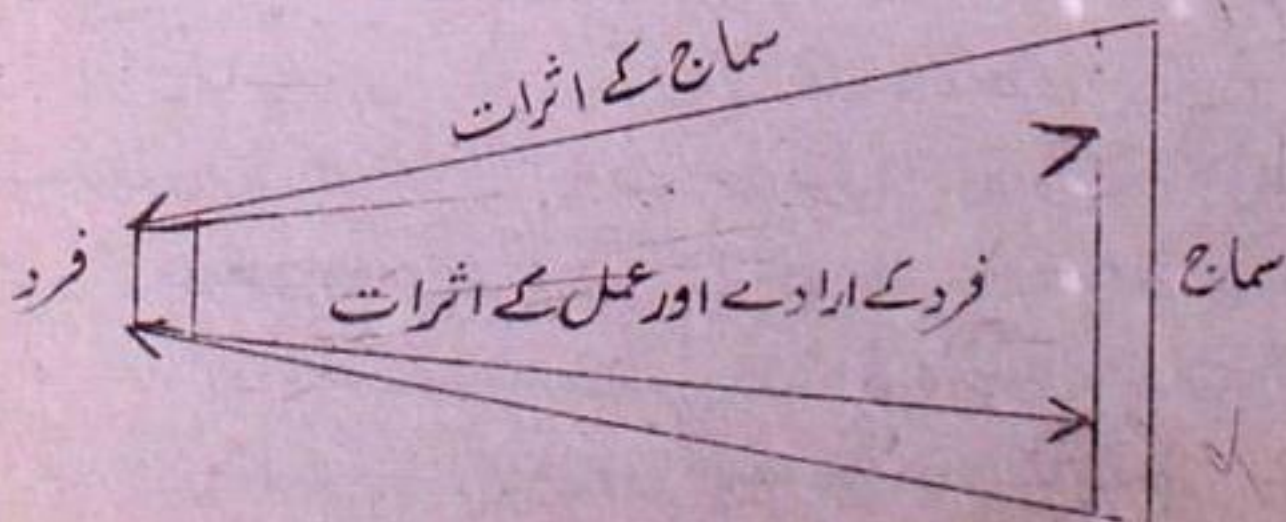 سماج کے اثرات
سماج
فرد کے ارادے اور عمل کے اثرات
فرد